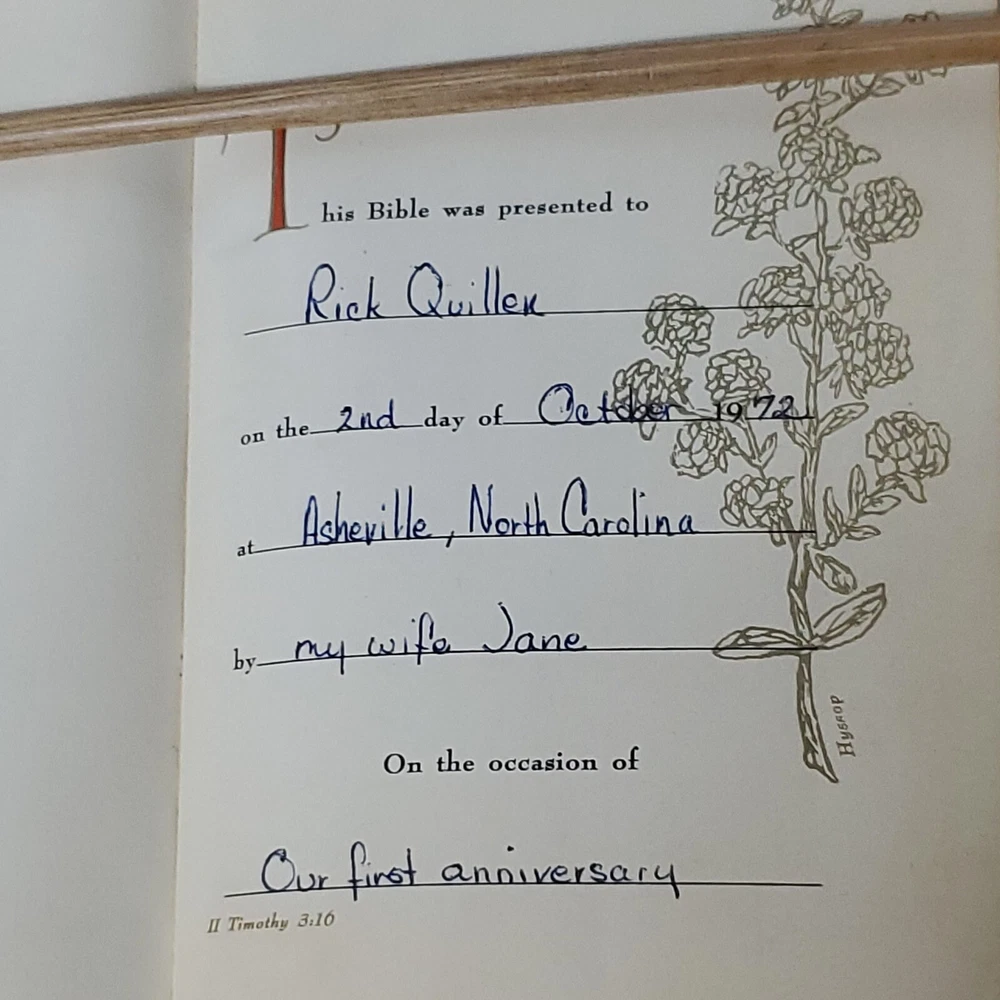 This Bible was presented to
Rick Quillen
on the 2nd day of October 1972
at Asheville, North Carolina
by my wife Jane
Hyssop
On the occasion of
Our first anniversary
II Timothy 3:16